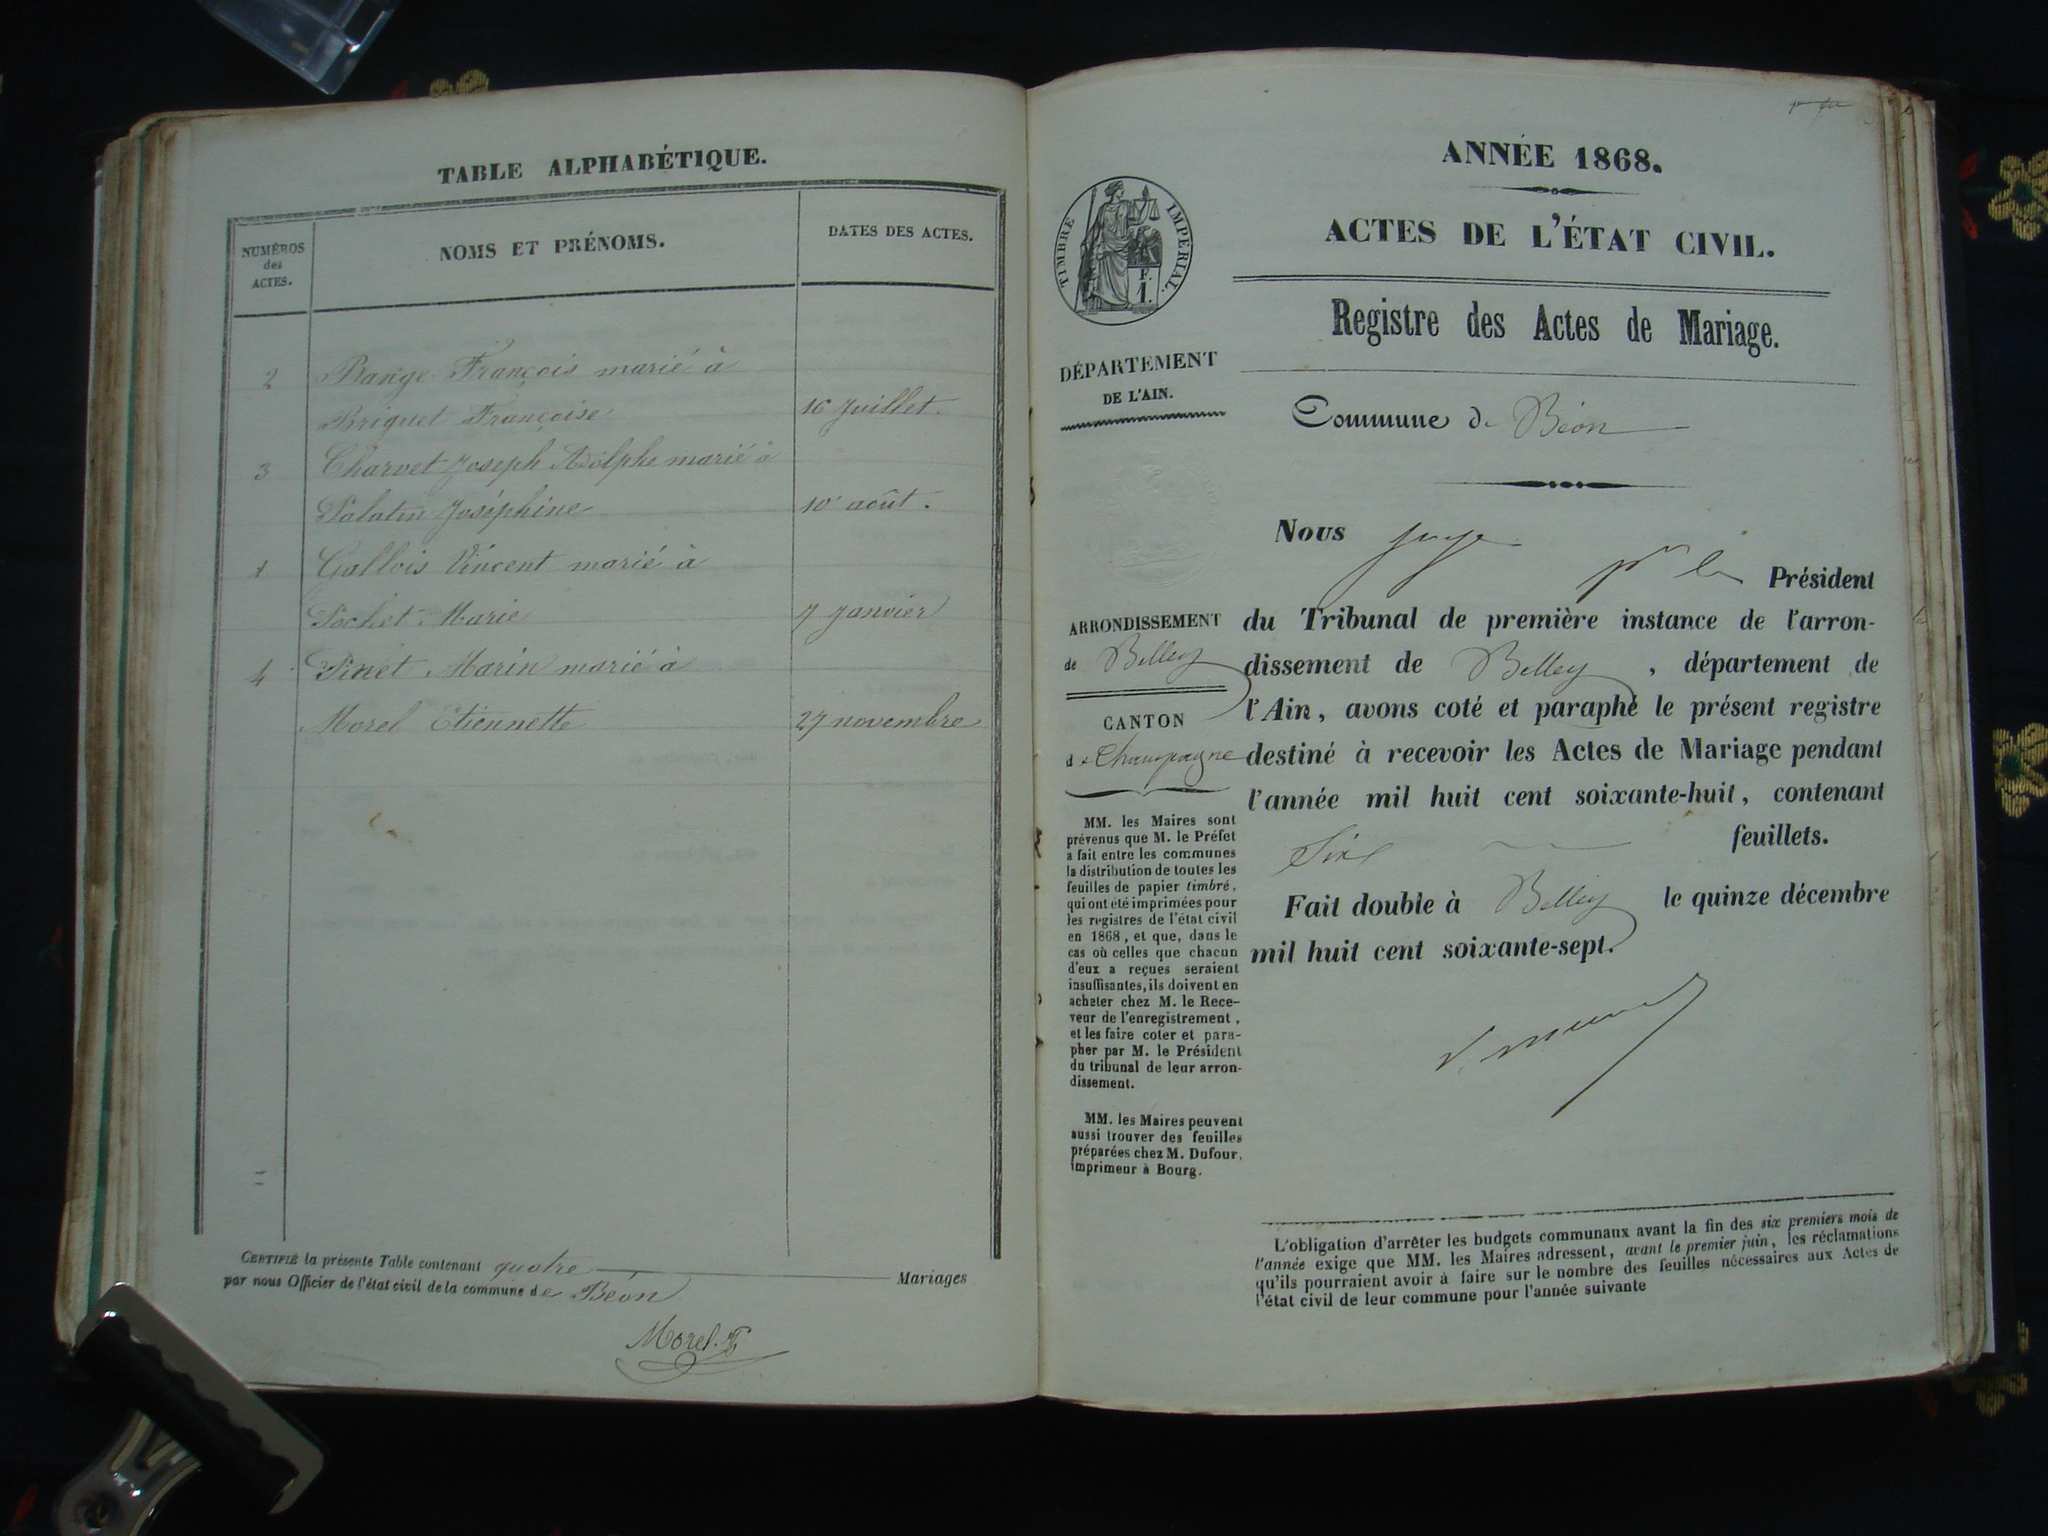 TABLE ALPHABÉTIQUE.
NUMÉROS
des
ACTES.
NOMS ET PRÉNOMS.
DATES DES ACTES.
2 Barge François marié à
Briguet Françoise 16 Juillet.
3 Charvet Joseph Adolphe marié à
Palatin Joséphine 10 août.
1 Gallois Vincent marié à
Pochet Marie 7 Janvier
4 Pinet Marin marié à
Morel Etiennette 27 novembre
CERTIFIÉ la présente Table contenant quatre Mariages
par nous Officier de l'état civil de la commune de Béon
Morel
ANNÉE 1868.
ACTES DE L'ÉTAT CIVIL.
TIMBRE IMPÉRIAL.
F.
1.
Registre des Actes de Mariage.
DÉPARTEMENT
DE L'AIN.
Commune de Béon
ARRONDISSEMENT
de Belley
CANTON
de Champagne
MM. les Maires sont
prévenus que M. le Préfet
a fait entre les communes
la distribution de toutes les
feuilles de papier timbré,
qui ont été imprimées pour
les registres de l'état civil
en 1868, et que, dans le
cas où celles que chacun
d'eux a reçues seraient
insuffisantes, ils doivent en
acheter chez M. le Rece-
veur de l'enregistrement,
et les faire coter et para-
pher par M. le Président
du tribunal de leur arron-
dissement.
MM. les Maires peuvent
aussi trouver des feuilles
préparées chez M. Dufour,
imprimeur à Bourg.
Nous juge
pr le Président
du Tribunal de première instance de l'arron-
dissement de Belley, département de
l'Ain, avons coté et paraphé le présent registre
destiné à recevoir les Actes de Mariage pendant
l'année mil huit cent soixante-huit, contenant
Six feuillets.
Fait double à Belley le quinze décembre
mil huit cent soixante-sept.
L'obligation d'arrêter les budgets communaux avant la fin des six premiers mois de
l'année exige que MM. les Maires adressent, avant le premier juin, les réclamations
qu'ils pourraient avoir à faire sur le nombre des feuilles nécessaires aux Actes de
l'état civil de leur commune pour l'année suivante